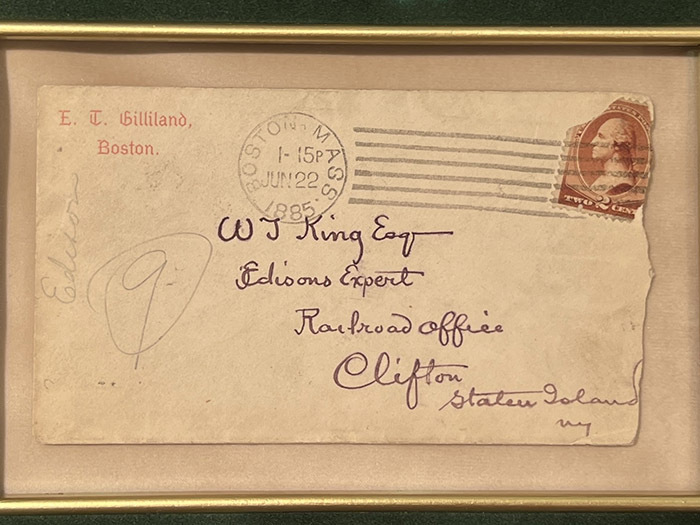 E. T. Gilliland,
Boston.
BOSTON. MASS.
1-15P
JUN 22
1885
TWO 2 CEN
W J King Esq
Edisons Expert
Railroad Office
Clifton
Staten Island
ny
Edison
9